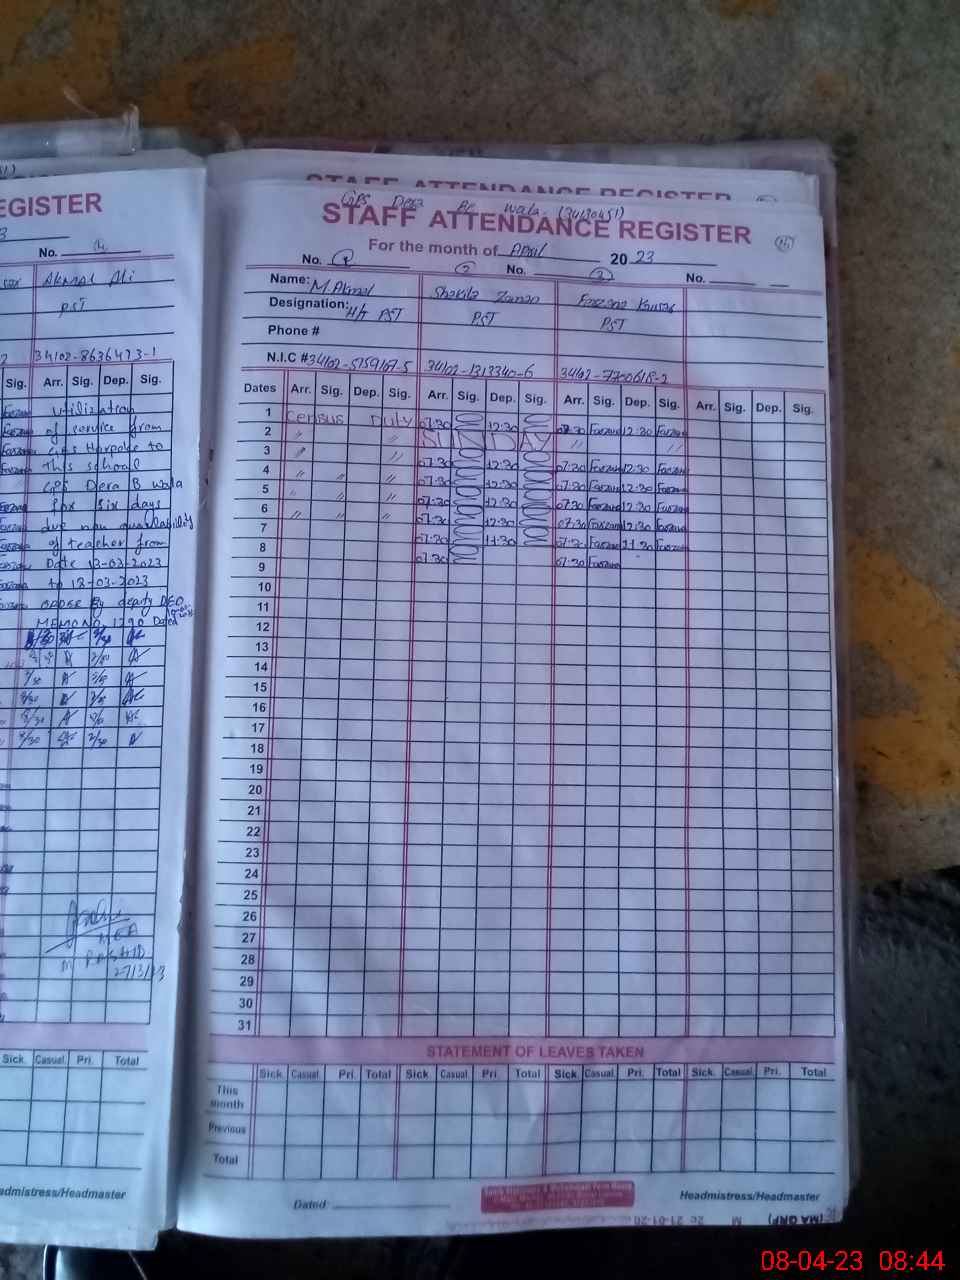 EGISTER
3
No. 14
Akmal Ali
PST
34102-8636473-1
Sig. Arr. Sig. Dep. Sig.
utilization
of service from
GPS Harpoke to
this school
GPS Dera B wala
for six days
due non availability
of teacher from
Date 13-03-2023
to 18-03-2023
ORDER By deputy DEO
MEMO NO. 1290 Dated
M RASHID
27/3/23
Sick. Casual. Pri. Total
admistress/Headmaster
STAFF ATTENDANCE REGISTER
GPS Dera Be wala (34130451)
STAFF ATTENDANCE REGISTER
For the month of April 2023
No. 1 2 No. 3 No.
Name: M.Akmal Shakila Zaman Farzana Kausar
Designation: H/T PST PST PST
Phone #
N.I.C # 34102-5759167-5 34102-1313340-6 34102-7700618-2
Dates Arr. Sig. Dep. Sig. Arr. Sig. Dep. Sig. Arr. Sig. Dep. Sig. Arr. Sig. Dep. Sig.
1 Census Duty 07:30 12:30 07:30 Farzana 12:30 Farzana
2 〃 〃 SUNDAY 〃 〃
3 〃 〃 07:30 12:30 07:30 Farzana 12:30 Farzana
4 〃 〃 〃 07:30 12:30 07:30 Farzana 12:30 Farzana
5 〃 〃 〃 07:30 12:30 07:30 Farzana 12:30 Farzana
6 〃 〃 〃 07:30 12:30 07:30 Farzana 12:30 Farzana
7 07:30 11:30 07:30 Farzana 11:30 Farzana
8 07:30 07:30 Farzana
9
10
11
12
13
14
15
16
17
18
19
20
21
22
23
24
25
26
27
28
29
30
31
STATEMENT OF LEAVES TAKEN
Sick. Casual. Pri. Total Sick. Casual. Pri. Total Sick. Casual. Pri. Total Sick. Casual. Pri. Total
This month
Previous
Total
Dated
Headmistress/Headmaster
08-04-23 08:44